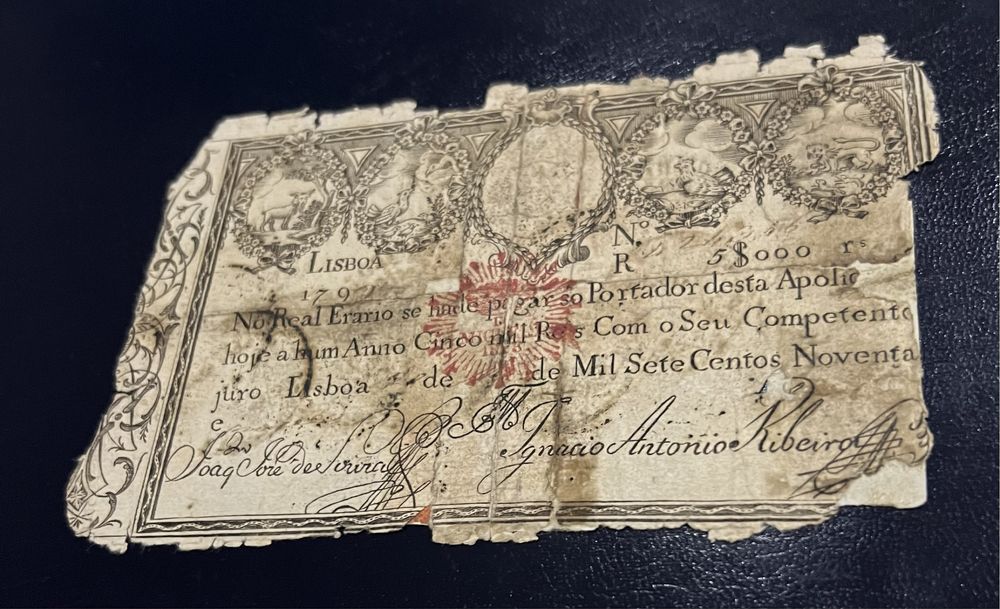 LISBOA
Nº
179
R 5$000 rˢ
No Real Erario se hade pagar ao Portador desta Apolic
hoje a hum Anno Cinco mil Reis Com o Seu Competente
juro Lisboa de de Mil Sete Centos Noventa
e
Joaq Jose de Souza
Ignacio Antonio Ribeiro